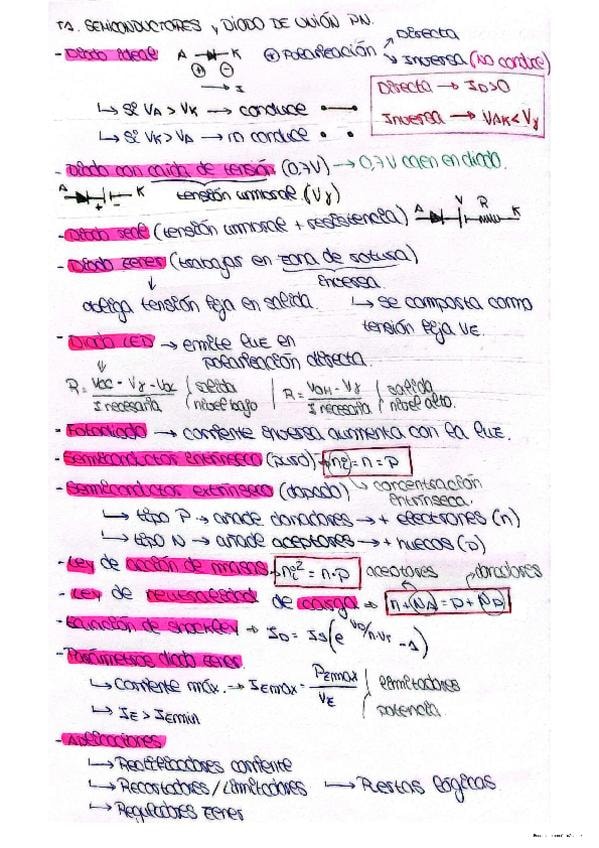 T3. SEMICONDUCTORES y DIODO DE UNIÓN PN.
- Diodo ideal A K ⊕ Polarización Directa
Inversa (NO conduce)
→ I
Directa → ID>0
Inversa → VAK<Vγ
↳ Si VA > VK → conduce
↳ Si VK > VA → no conduce
- Diodo con caída de tensión (0,7V) → 0,7V caen en diodo.
A K tensión umbral (Vγ)
+ -
- Diodo real (tensión umbral + resistencia) A V R K
- Diodo zener (trabajar en zona de rotura)
inversa
obliga tensión fija en salida ↳ se comporta como
tensión fija VZ.
- Diodo LED → emite luz en
polarización directa.
R = VCC - Vγ - VOL / I necesaria salida nivel bajo | R = VOH - Vγ / I necesaria salida nivel alto.
- Fotodiodo → corriente inversa aumenta con la luz.
- Semiconductor intrínseco (puro) → ni = n = p
- Semiconductor extrínseco (dopado) ↳ concentración
intrínseca.
↳ tipo P → añade donadores → + electrones (n)
↳ tipo N → añade aceptores → + huecos (p)
- Ley de acción de masas → ni² = n·p aceptores donadores
- Ley de neutralidad de carga → n + NA = p + ND
- Ecuación de Shockley → ID = IS(e^VD/n·VT - 1)
- Parámetros diodo zener
↳ Corriente máx. → IZmax = PZmax / VZ limitadores
potencia.
↳ IZ > IZmin
- Aplicaciones
↳ Rectificadores corriente
↳ Recortadores / Limitadores ↳ Puertas lógicas.
↳ Reguladores zener